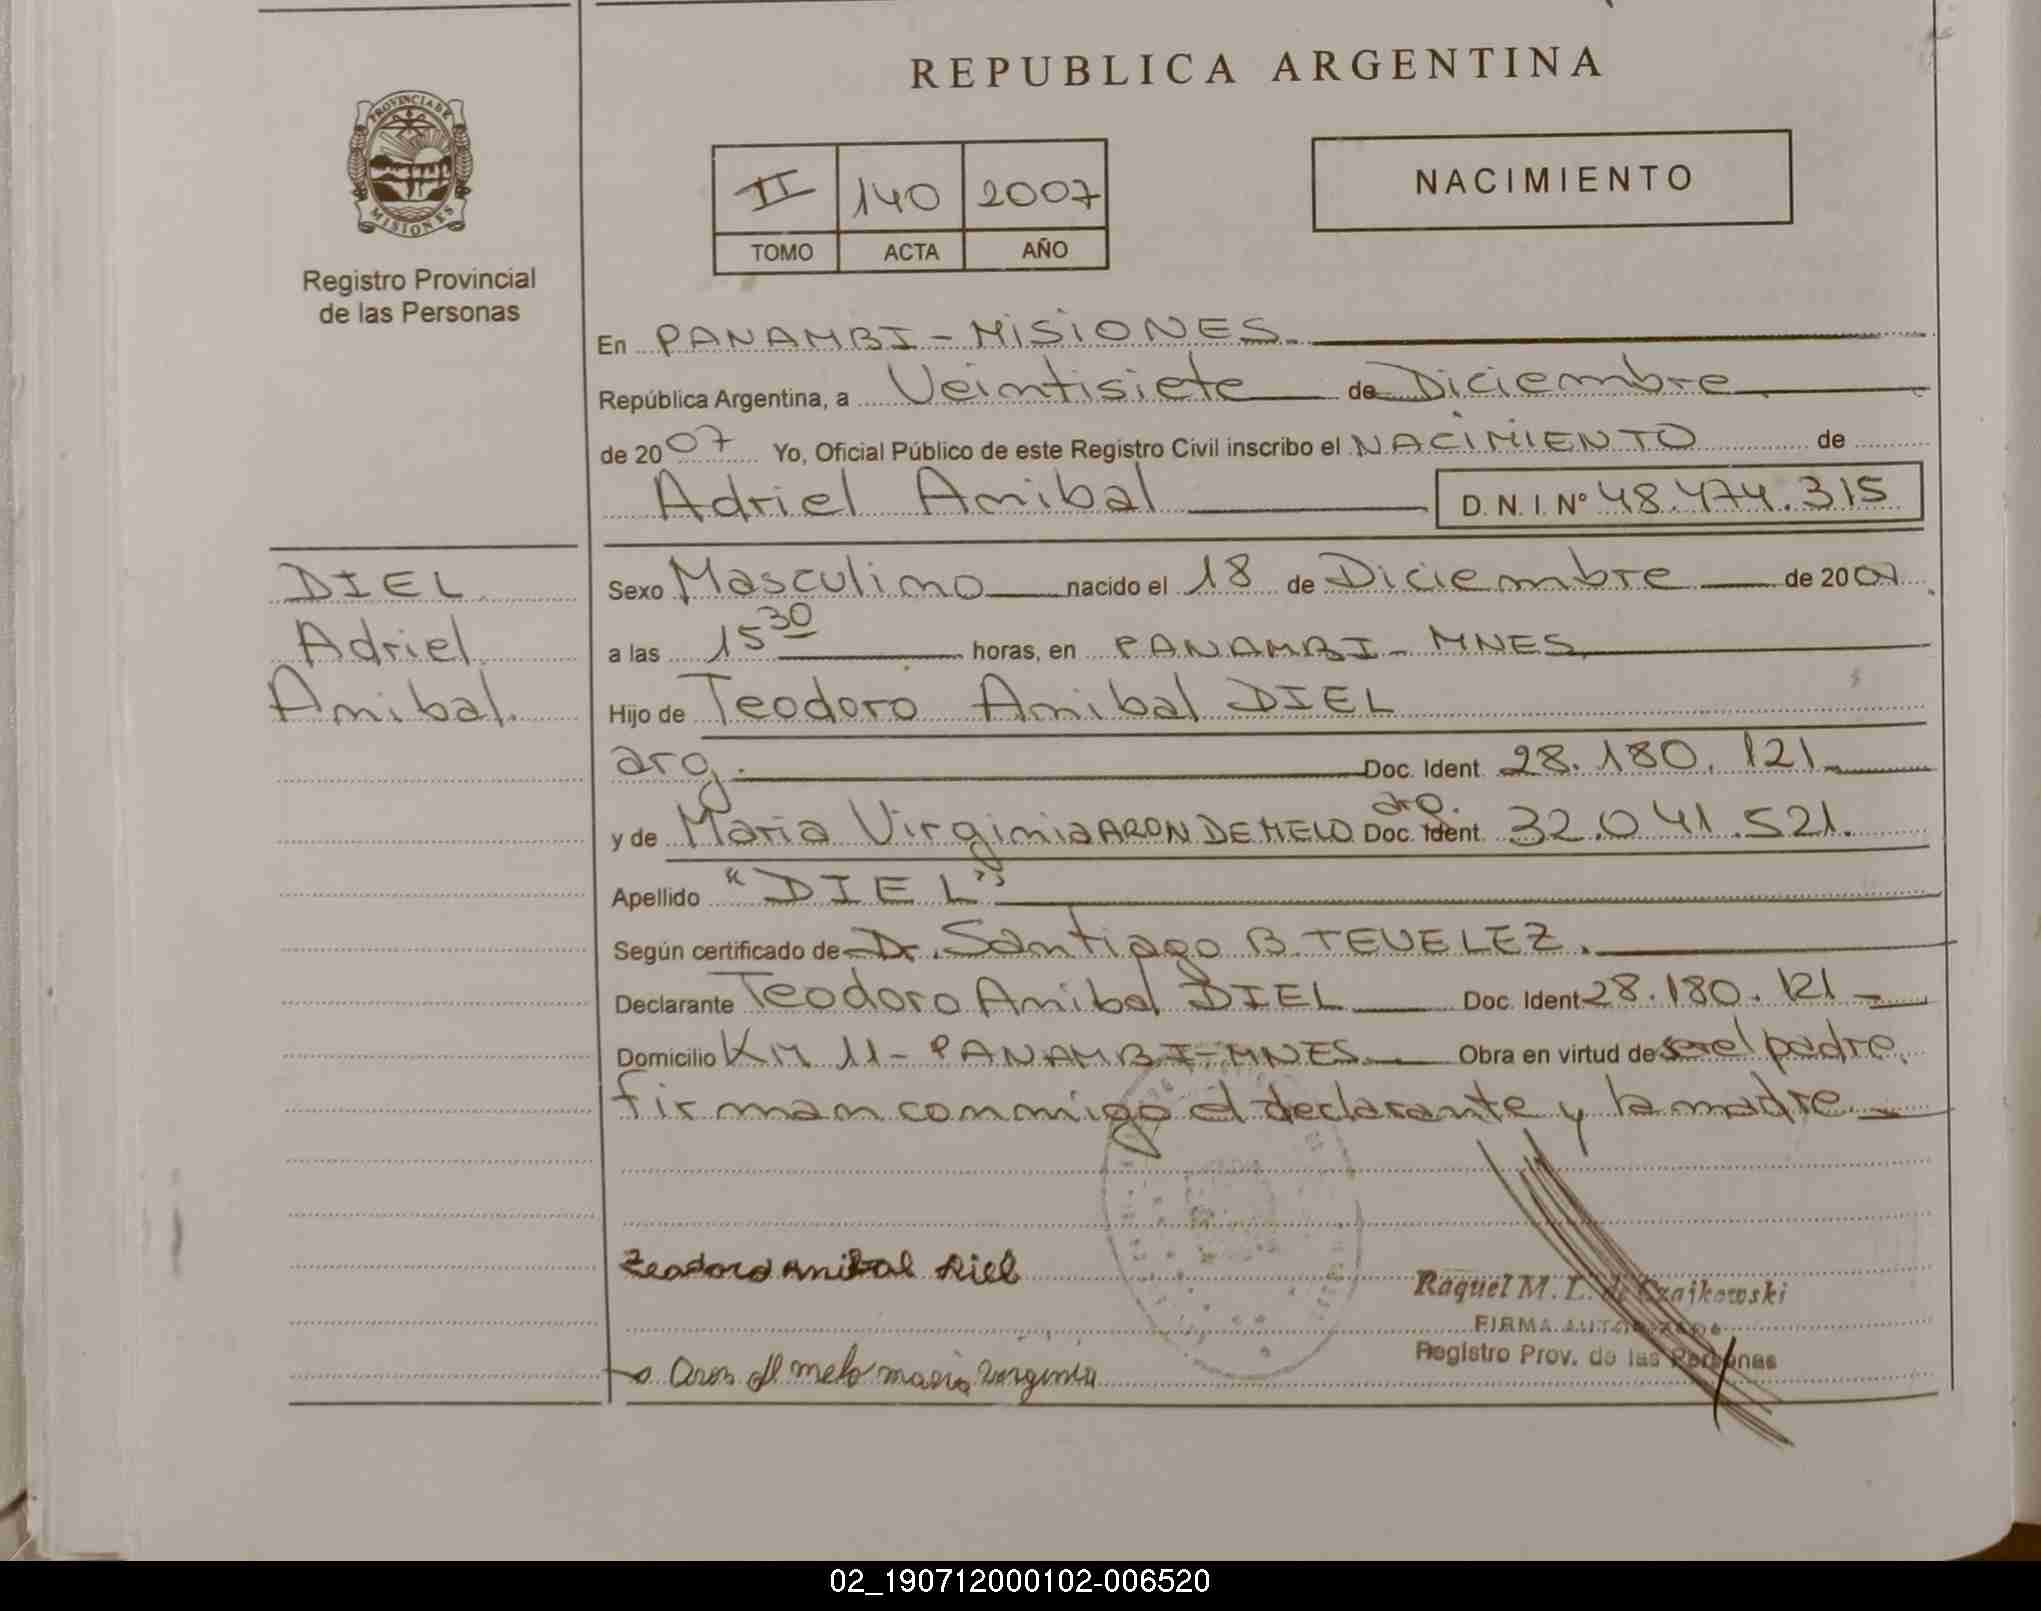 REPUBLICA ARGENTINA
PROVINCIA DE
MISIONES
Registro Provincial
de las Personas
II 140 2007
TOMO ACTA AÑO
NACIMIENTO
En PANAMBI - MISIONES
República Argentina, a Veintisiete de Diciembre
de 2007 Yo, Oficial Público de este Registro Civil inscribo el NACIMIENTO de
Adriel Anibal D. N. I. Nº 48.474.315
DIEL
Adriel
Anibal.
Sexo Masculino nacido el 18 de Diciembre de 2007
a las 15 30 horas, en PANAMBI - MNES
Hijo de Teodoro Anibal DIEL
arg. Doc. Ident. 28.180.121
y de Maria Virginia ARON DE MELO arg. Doc. Ident. 32.041.521.
Apellido "DIEL"
Según certificado de Dr. Santiago B. TEVELEZ.
Declarante Teodoro Anibal DIEL Doc. Ident. 28.180.121
Domicilio KM 11 - PANAMBI - MNES Obra en virtud de ser el padre,
firman conmigo el declarante y la madre
Teodoro Anibal Diel
Raquel M. L. de Czajkowski
FIRMA AUTORIZADA
Registro Prov. de las Personas
Aron d melo maria virginia
02_190712000102-006520